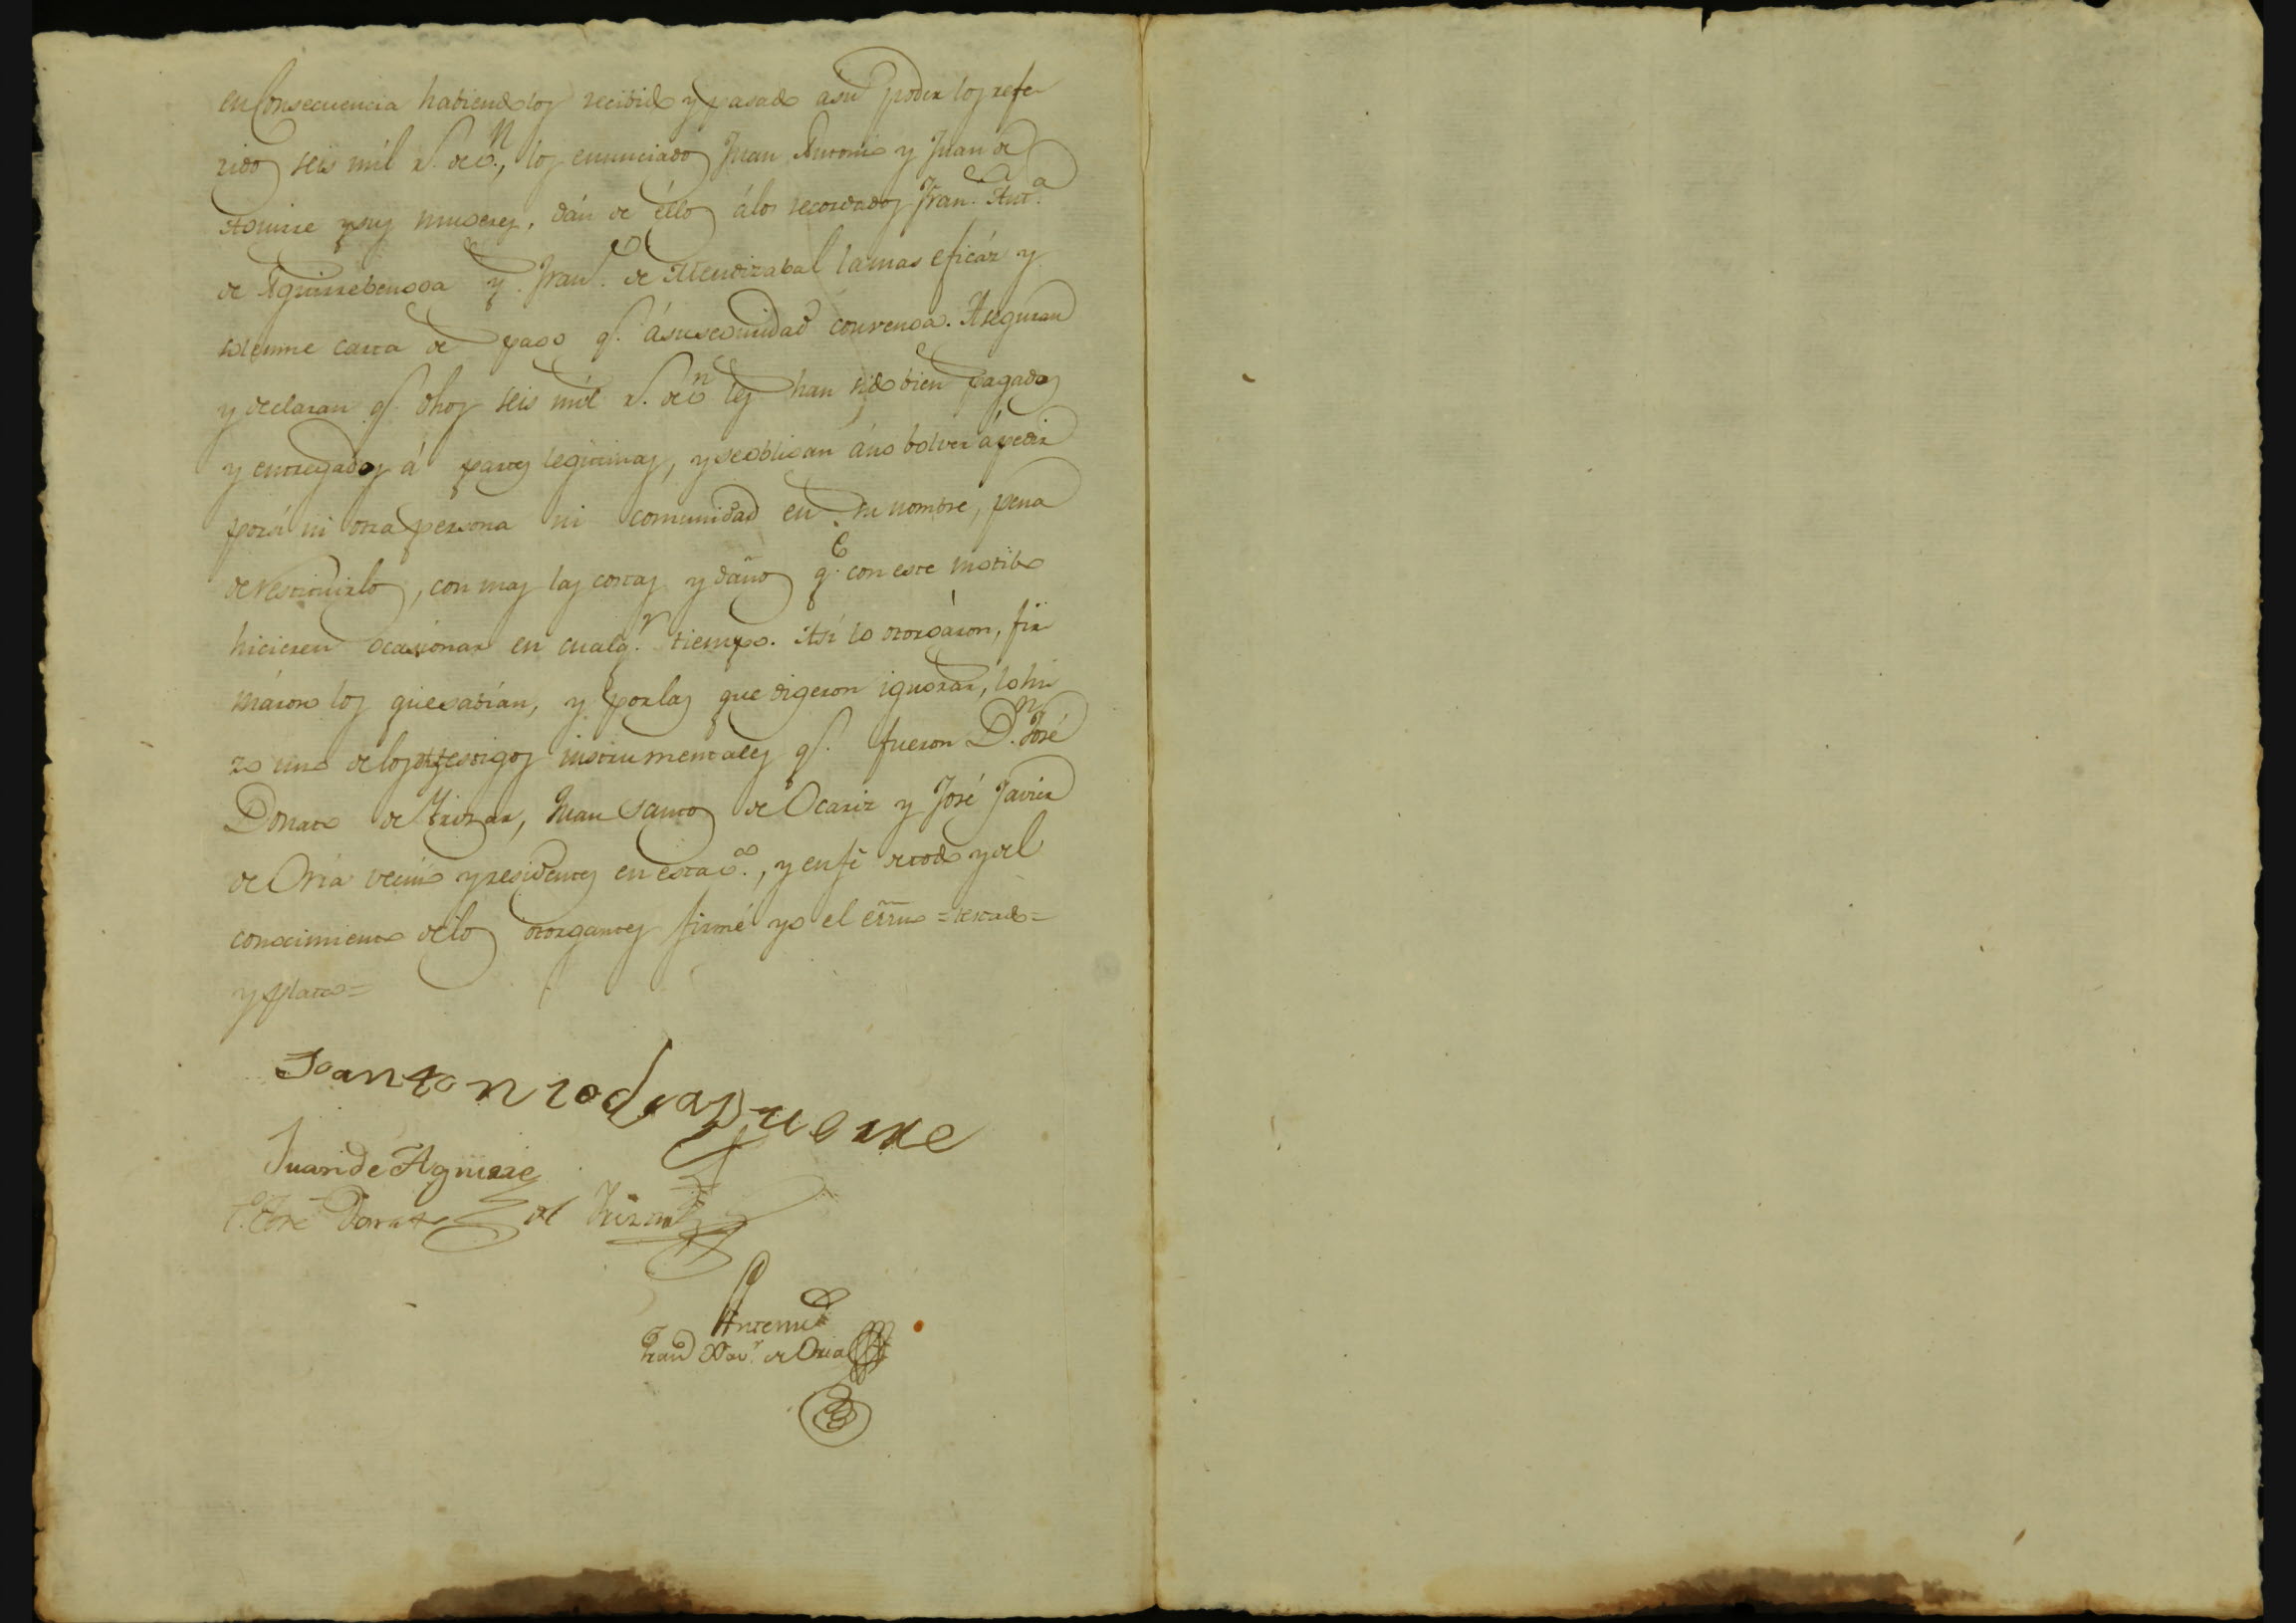 en Consecuencia habiendolos recibido y pasado asu poder los refe
ridos seis mil r.s de v.n, los enunciados Juan Antonio y Juan de
Aguirre y sus mugeres, dán de éllos álos recordados Fran.ca Ant.a
de Aguirrebengoa y Fran.co de Mendizabal lamas eficáz y
solemne carta de pago q.e ásuseguridad convenga. Aseguran
y declaran q.e dhos seis mil r.s de v.n les han sido bien pagados
y entregados á partes legitimas, y seobligan áno bolver ápedir
porsí ni otra persona ni comunidad en su nombre, pena
de restituirlos, con mas las costas y daños q.e con este motibo
hicieren ocasionar en cualq.r tiempo. Asi lo otorgáron, fir
máron los quesabían, y porlas que digeron ignorar, lo hi
zo uno delos testigos instrumentales q.e fueron D.n José
Donato de Irizar, Juan Santos de Ocariz y José Javier
de Oria vecino y residentes en esta v.a, y enfé detodo y del
conocimiento delos otorgantes firmé yo el esrno = testado =
y plata =
Joan Antonio de Aguerre
Juan de Aguirre
T. José Donato de Irizar
Antemi
Fran.co Xav.r de Oria